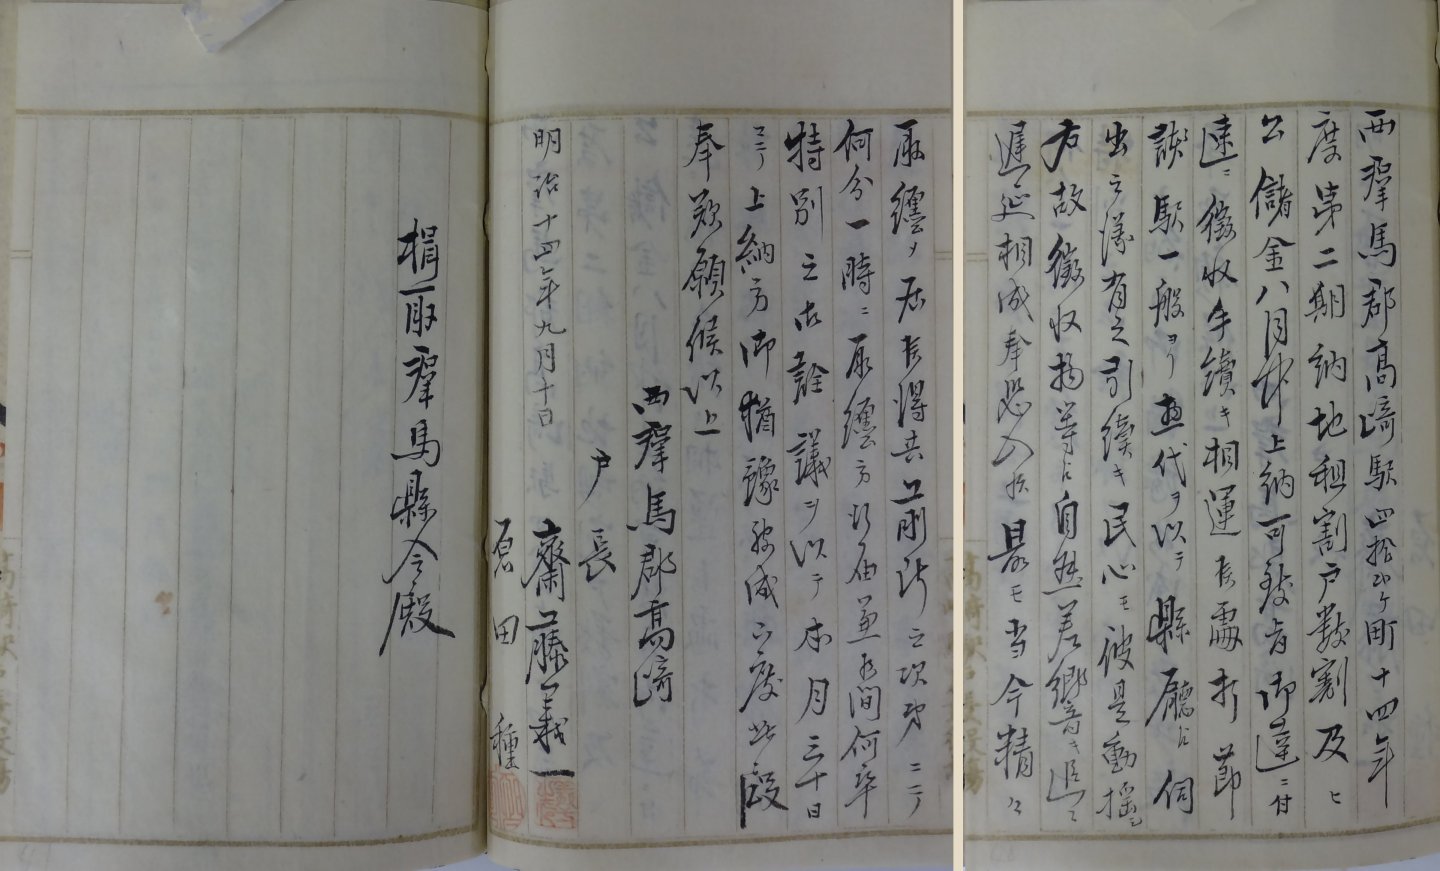 西群馬郡高崎駅四拾弐ヶ町十四年
度第二期納地租割戸数割及ヒ
公儲金八月中上納可致旨御達ニ付
速ニ徴収手続キ相運候處折節
該駅一般ヨリ惣代ヲ以テ縣廳ヘ伺
出之儀有之引続キ民心モ彼是動揺シ
右故徴収物等ニ自然差響キ追々
遅延相成奉恐入候最モ当今精々
取纏メ居候得共前断之次第ニテ
何分一時ニ取纏方行届兼候間何卒
特別之御詮議ヲ以テ本月三十日
マテ上納方御猶豫被成下度此段
奉歎願候以上
西群馬郡高崎
戸長
明治十四年九月十日
齋藤義一
原田 種
楫取群馬縣令殿